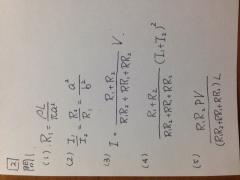 [2]
問1
(1) R₁ = ρL / πa²
(2) I₁/I₂ = R₂/R₁ = a²/b²
(3) I = (R₁+R₂) / (R₁R₂+RR₁+RR₂) V
(4) (R₁+R₂) / (R₁R₂+RR₁+RR₂) (I₁+I₂)²
(5) R₁R₂PV / (RR₂+RR₁+RR₁)L